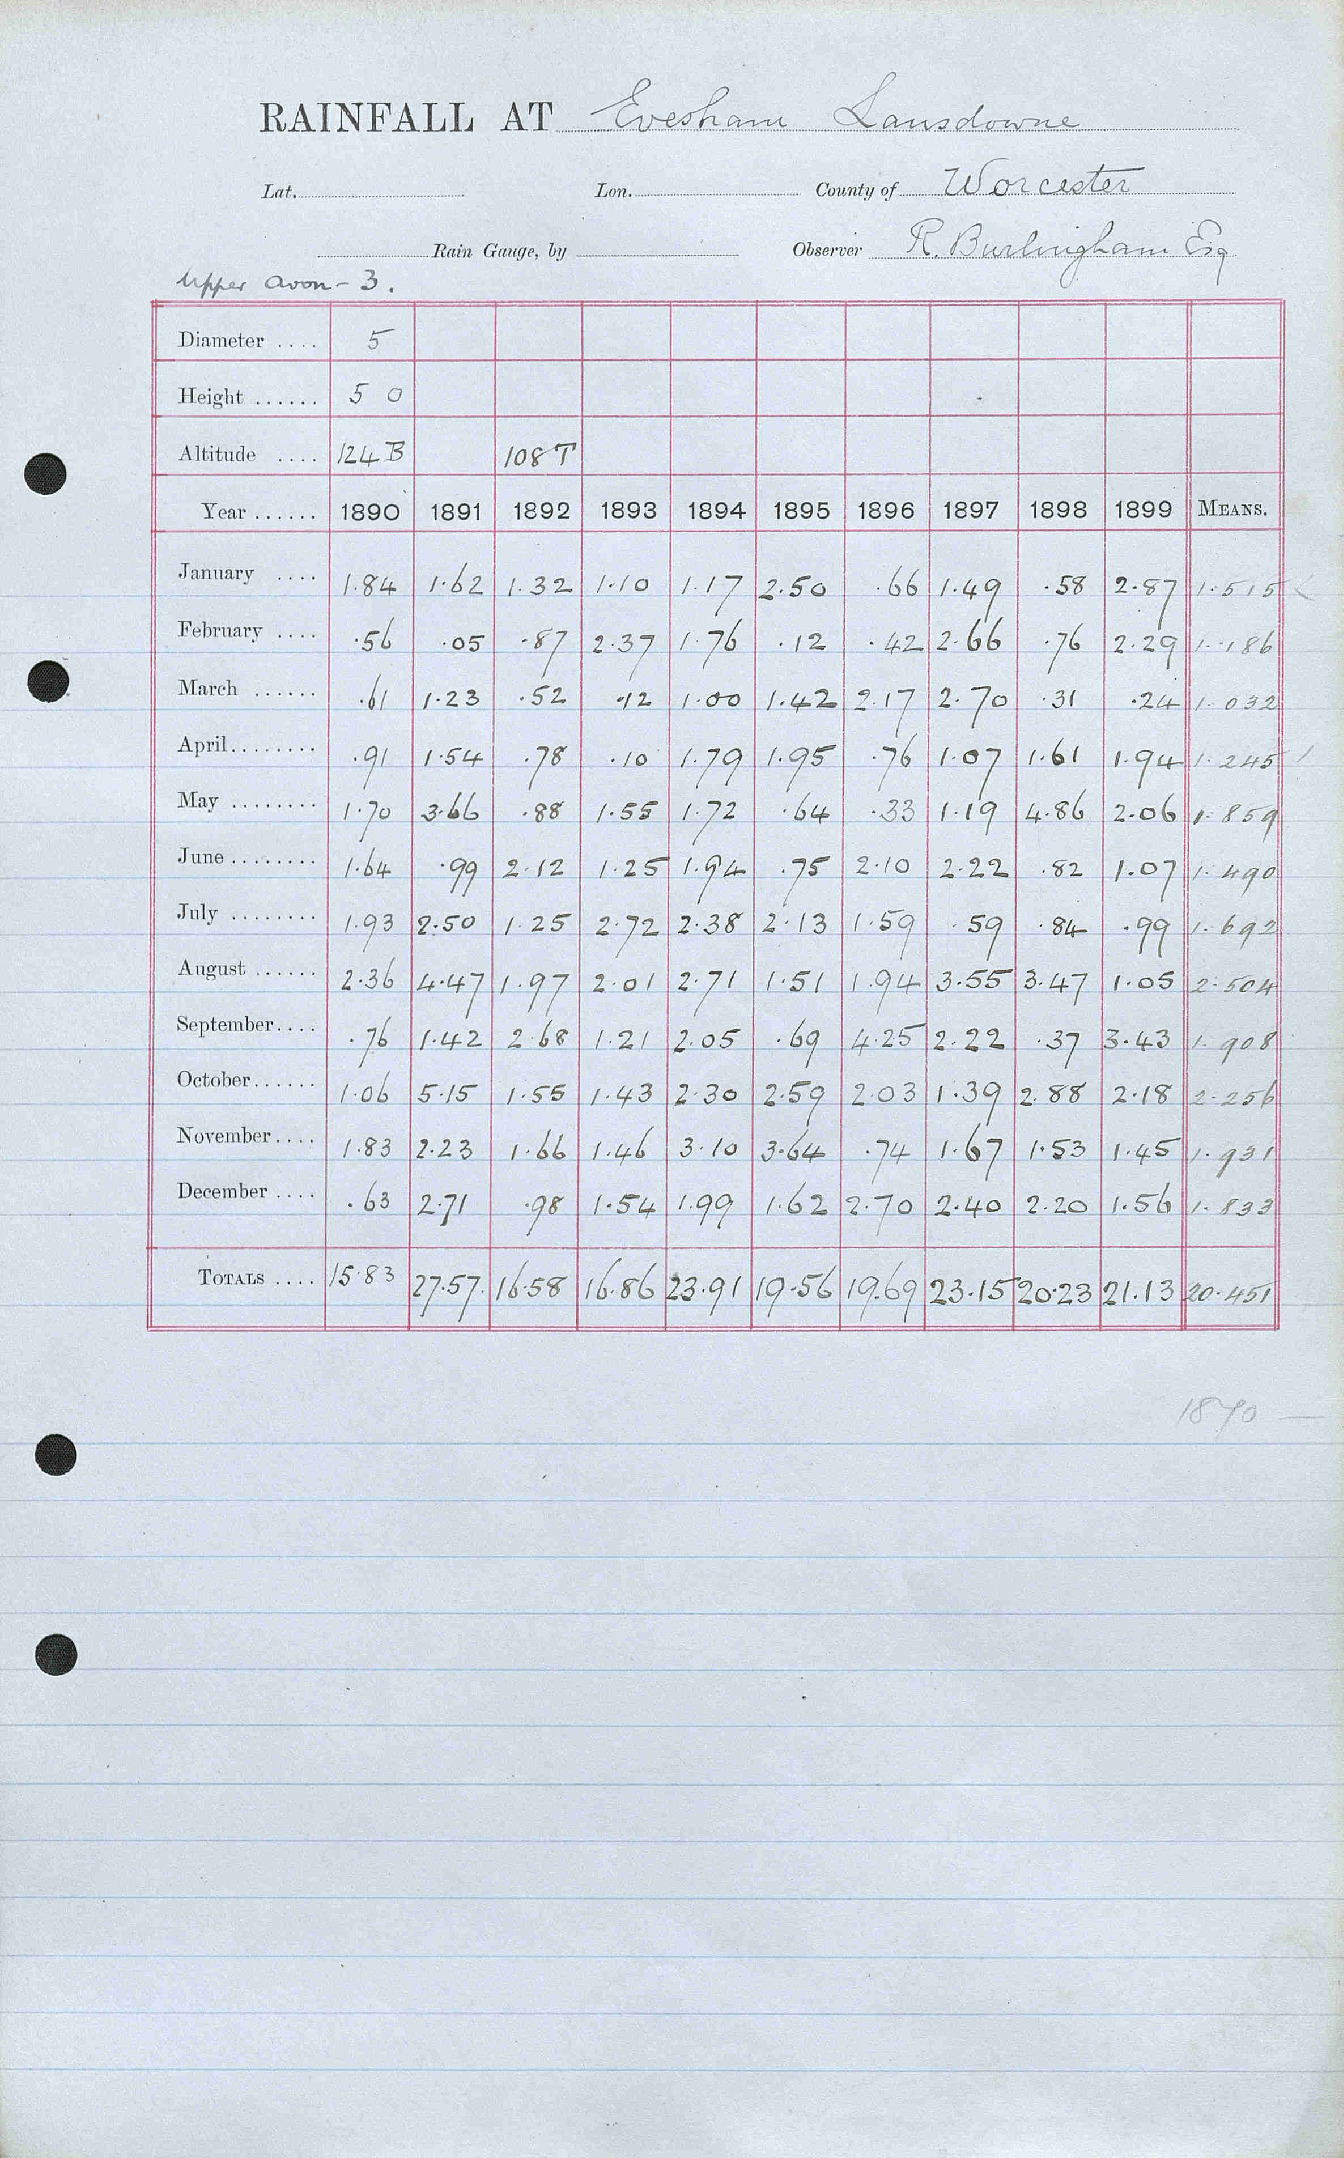 RAINFALL AT Evesham Lansdowne
Lat. Lon. County of Worcester
Rain Gauge, by Observer R. Burlingham Esq
Upper Avon - 3.
Diameter .... 5
Height ...... 5 0
Altitude .... 124 B 108 T
Year ...... 1890 1891 1892 1893 1894 1895 1896 1897 1898 1899 MEANS.
January .... 1.84 1.62 1.32 1.10 1.17 2.50 .66 1.49 .58 2.87 1.515
February .... .56 .05 .87 2.37 1.76 .12 .42 2.66 .76 2.29 1.186
March ...... .61 1.23 .52 .12 1.00 1.42 2.17 2.70 .31 .24 1.032
April ........ .91 1.54 .78 .10 1.79 1.95 .76 1.07 1.61 1.94 1.245
May ........ 1.70 3.66 .88 1.55 1.72 .64 .33 1.19 4.86 2.06 1.859
June ........ 1.64 .99 2.12 1.25 1.94 .75 2.10 2.22 .82 1.07 1.490
July ........ 1.93 2.50 1.25 2.72 2.38 2.13 1.59 .59 .84 .99 1.692
August ...... 2.36 4.47 1.97 2.01 2.71 1.51 1.94 3.55 3.47 1.05 2.504
September .... .76 1.42 2.68 1.21 2.05 .69 4.25 2.22 .37 3.43 1.908
October ...... 1.06 5.15 1.55 1.43 2.30 2.59 2.03 1.39 2.88 2.18 2.256
November .... 1.83 2.23 1.66 1.46 3.10 3.64 .74 1.67 1.53 1.45 1.931
December .... .63 2.71 .98 1.54 1.99 1.62 2.70 2.40 2.20 1.56 1.833
TOTALS .... 15.83 27.57 16.58 16.86 23.91 19.56 19.69 23.15 20.23 21.13 20.451
1870 —